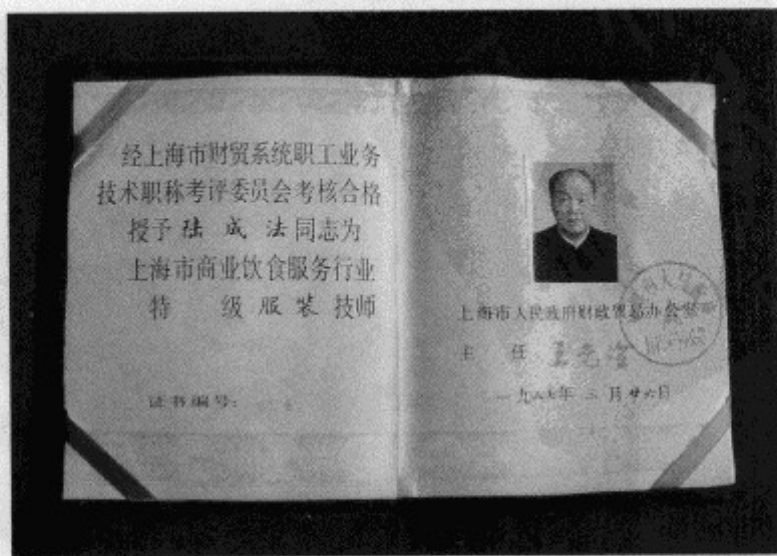 经上海市财贸系统职工业务
技术职称考评委员会考核合格
授予陆成法同志为
上海市商业饮食服务行业
特 级服装技师
证书编号:
上海市人民政府财政贸易办公室
主 任
一九八七年二月廿六日